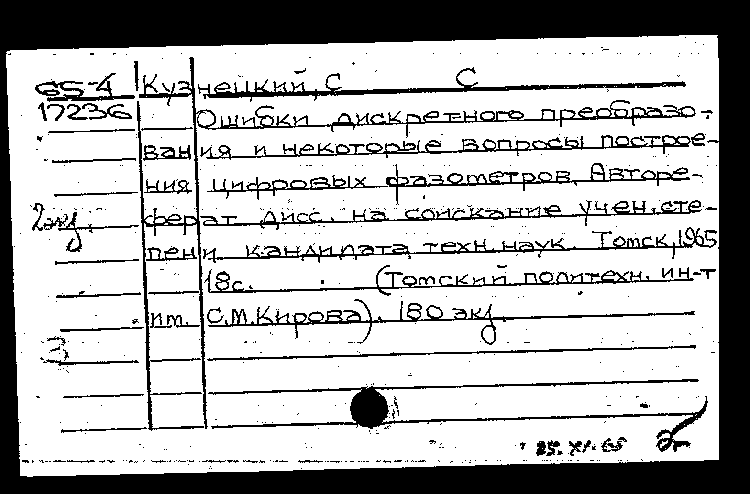 65-4 Кузнецкий, С С
17236 Ошибки дискретного преобразо-
вания и некоторые вопросы построе-
ния цифровых фазометров. Авторе-
2экз. ферат дисс. на соискание учен. сте-
пени кандидата техн. наук. Томск, 1965
18с. (Томский политехн. ин-т
им. С.М.Кирова). 180 экз.
3
25.XI.65